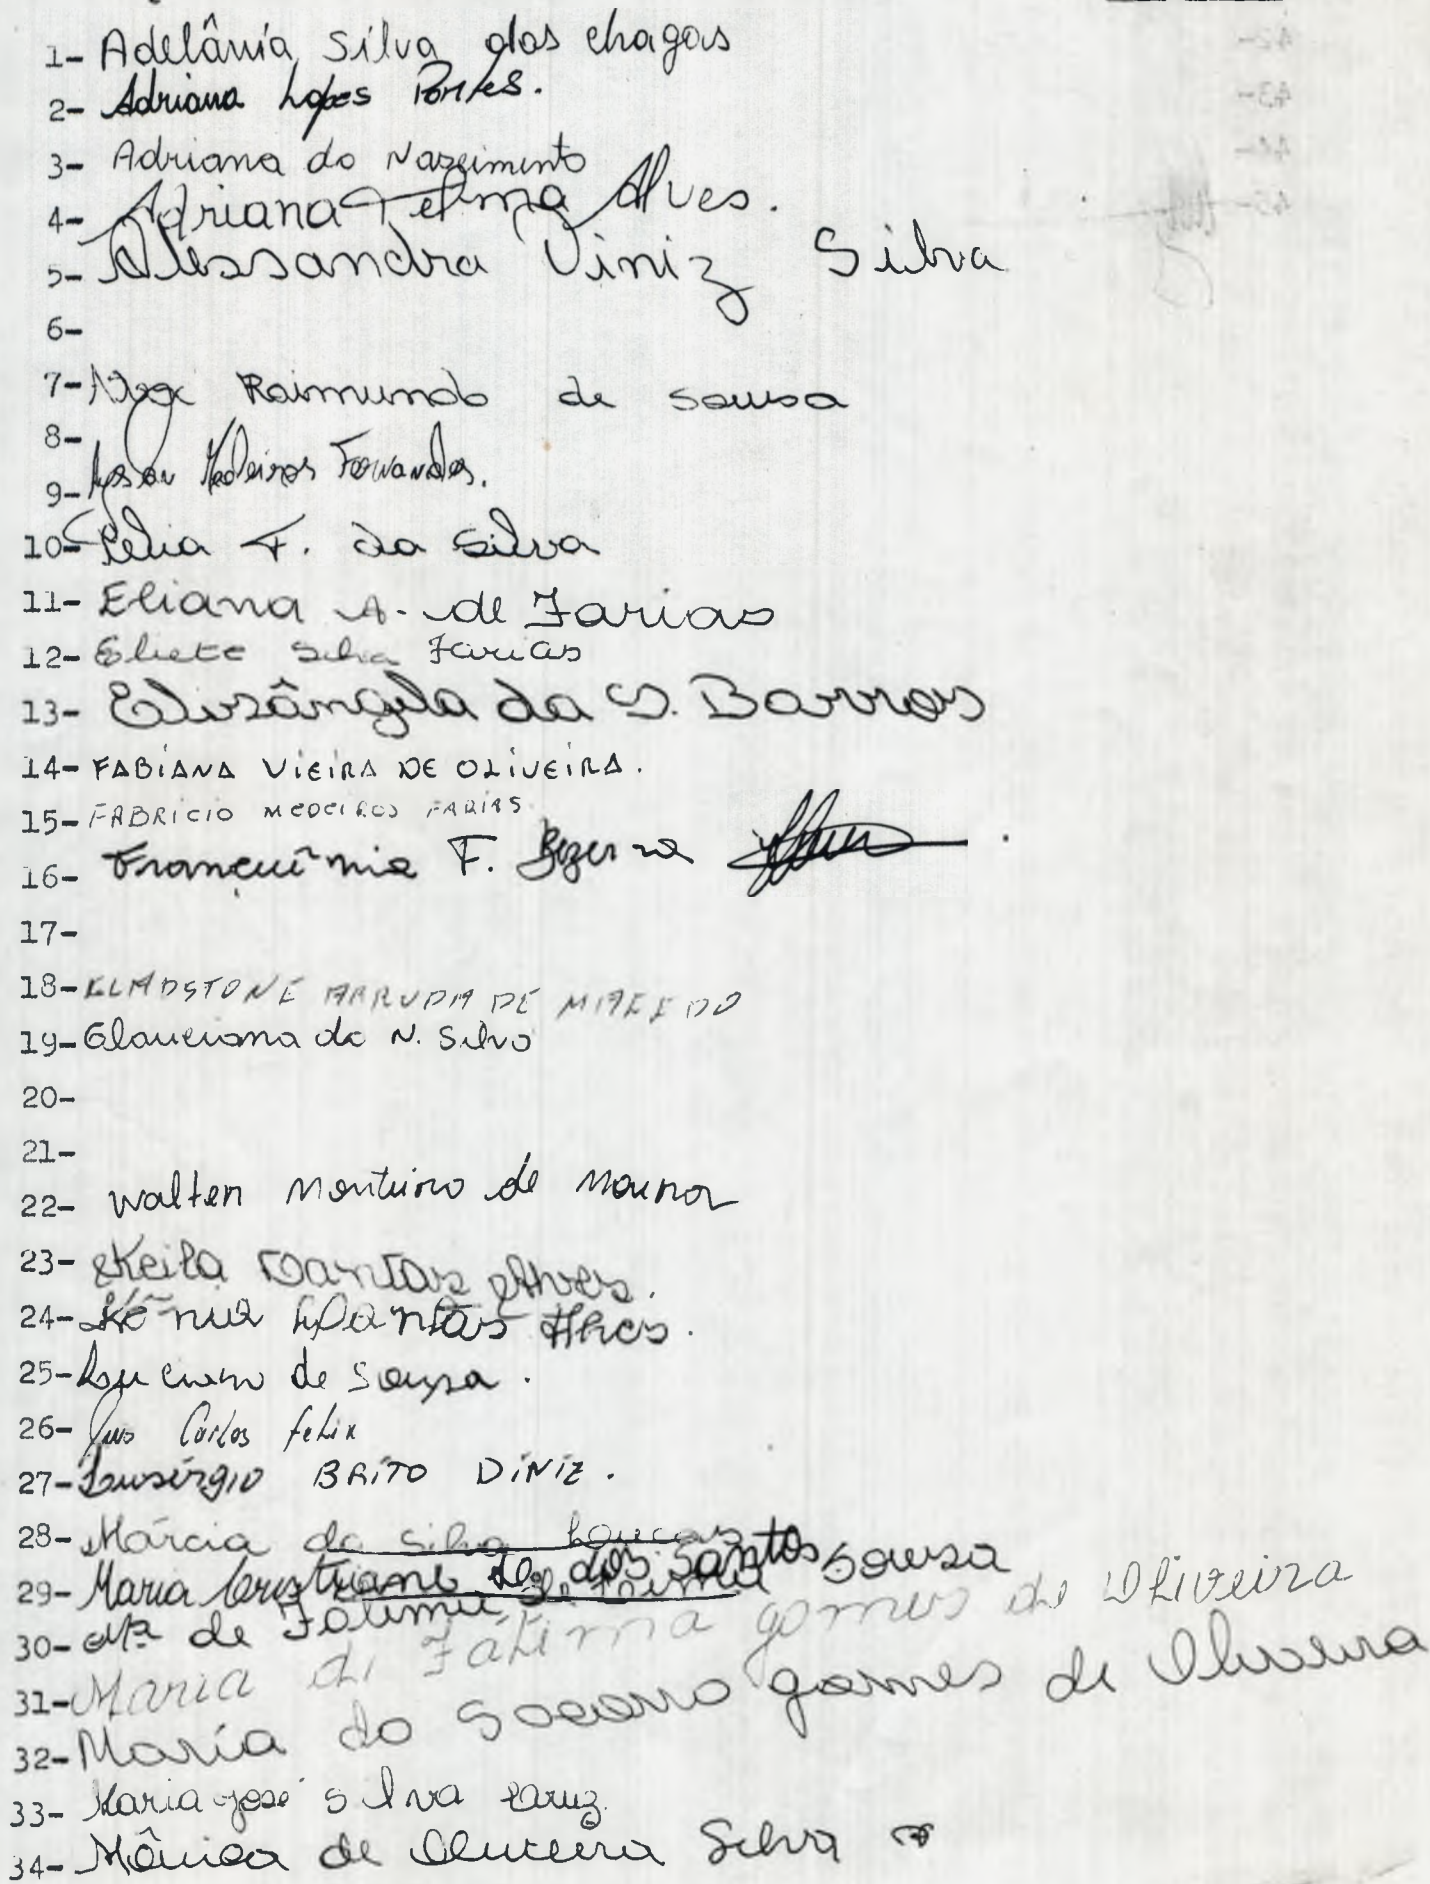 1- Adelânia Silva das Chagas
2- Adriana Lopes Pontes.
3- Adriana do Nascimento
4- Adriana Telma Alves.
5- Alessandra Diniz Silva
6-
7- Alex Raimundo de Sousa
8-
9- Medeiros Fernandes.
10- Célia F. da Silva
11- Eliana A. de Farias
12- Eliete Silva Farias
13- Elisângela da S. Barros
14- FABIANA VIEIRA DE OLIVEIRA.
15- FABRICIO MEDEIROS FARIAS
16- F. Bezerra
17-
18- GLADSTONE ARRUDA DE MACEDO
19- Glauciana da N. Silva
20-
21-
22- Walter Monteiro de Moura
23- Keila Dantas Alves.
24- Kênia Dantas Alves.
25- Luciano de Sousa.
26- Luis Carlos Felix
27- Lusérgio BRITO DINIZ.
28- Márcia da Silva
29- Maria Cristiane dos Santos Sousa
30- Mª de Fátima de Lima
31- Maria de Fátima gomes de Oliveira
32- Maria do Socorro gomes de Oliveira
33- Maria José Silva Cruz
34- Mônica de Oliveira Silva
42-
43-
44-
45-